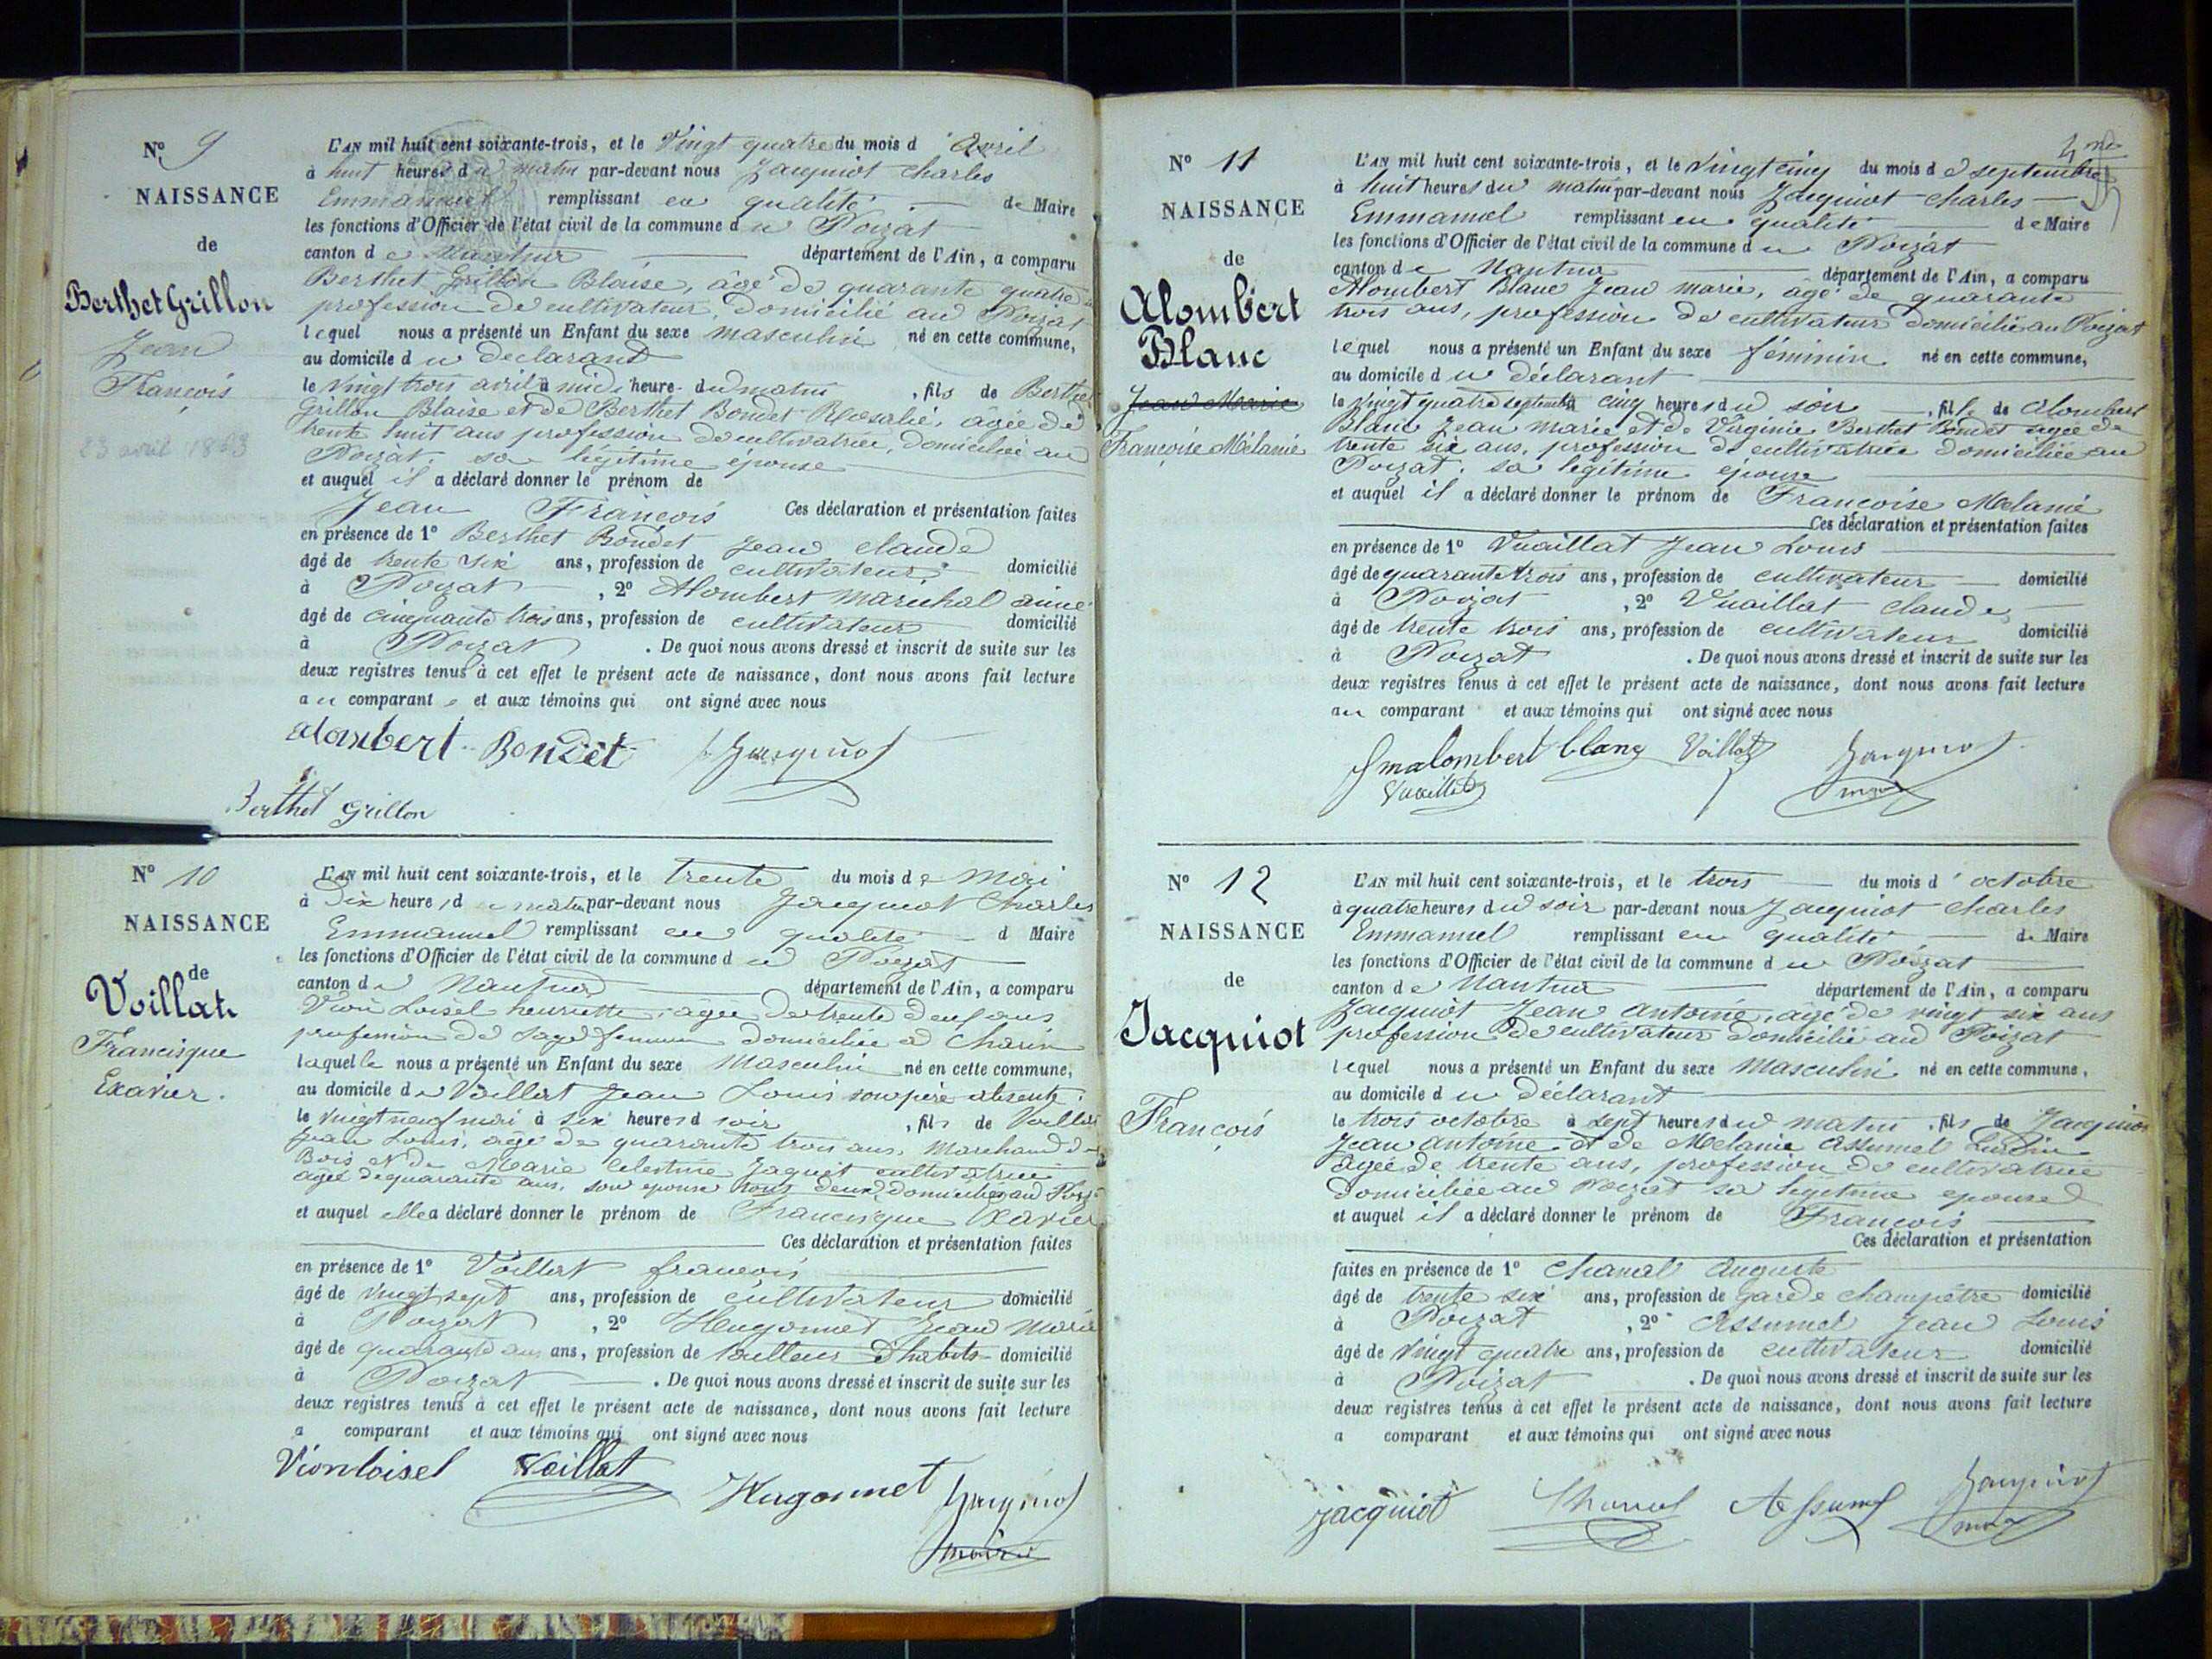 Nº 9
NAISSANCE
de
Berthet Grillon
Jean
François
23 avril 1863
L'AN mil huit cent soixante-trois, et le Vingt quatre du mois d'avril
à huit heures du matin par-devant nous Jacquiot Charles
Emmanuel remplissant en qualité de Maire
les fonctions d'Officier de l'état civil de la commune du Poizat
canton de Nantua département de l'Ain, a comparu
Berthet Grillon Blaise, âgé de quarante quatre
profession de cultivateur, domicilié au Poizat
lequel nous a présenté un Enfant du sexe masculin né en cette commune,
au domicile du declarant
le Vingt trois avril à midi heure du matin, fils de Berthet
Grillon Blaise et de Berthet Bondet Rosalie, âgée de
trente huit ans profession de cultivatrice, domiciliée au
Poizat, sa légitime épouse
et auquel il a déclaré donner le prénom de
Jean François Ces déclaration et présentation faites
en présence de 1º Berthet Bondet Jean Claude
âgé de trente six ans, profession de cultivateur domicilié
à Poizat, 2º Alombert Maréchal aimé
âgé de cinquante trois ans, profession de cultivateur domicilié
à Poizat. De quoi nous avons dressé et inscrit de suite sur les
deux registres tenus à cet effet le présent acte de naissance, dont nous avons fait lecture
au comparant et aux témoins qui ont signé avec nous
alombert Bondet Jacquiot
Berthet Grillon
Nº 10
NAISSANCE
de
Voillat
Francisque
Exavier.
L'AN mil huit cent soixante-trois, et le trente du mois de Mai
à Dix heures du matin par-devant nous Jacquiot Charles
Emmanuel remplissant en qualité d Maire
les fonctions d'Officier de l'état civil de la commune du Poizat
canton de Nantua département de l'Ain, a comparu
Vion Loisel henriette, agée de trente deux ans
profession de sage femme domiciliée à Charix
laquelle nous a présenté un Enfant du sexe Masculin né en cette commune,
au domicile de Voillat Jean Louis son père absente
le vingt neuf mai à six heures d soir, fils de Voillat
Jean Louis, agé de quarante trois ans, Marchand de
Bois et de Marie Celestine Jaquet cultivatrice
agée de quarante ans, son epouse tous deux domiciliés au Poizat
et auquel elle a déclaré donner le prénom de Francisque Xavier
Ces déclaration et présentation faites
en présence de 1º Voillat françois
âgé de vingt sept ans, profession de cultivateur domicilié
à Poizat, 2º Hugonnet Jean Marie
âgé de quarante ans ans, profession de tailleur d'habits domicilié
à Poizat. De quoi nous avons dressé et inscrit de suite sur les
deux registres tenus à cet effet le présent acte de naissance, dont nous avons fait lecture
a comparant et aux témoins qui ont signé avec nous
Vionloisel Voillat Hugonnet Jacquiot
maire
4me
Nº 11
NAISSANCE
de
Alombert
Blanc
Jean Marie
Françoise Mélanie
L'AN mil huit cent soixante-trois, et le vingt cinq du mois de septembre
à huit heures du matin par-devant nous Jacquiot Charles
Emmanuel remplissant en qualité de Maire
les fonctions d'Officier de l'état civil de la commune du Poizat
canton de Nantua département de l'Ain, a comparu
Alombert Blanc Jean Marie, agé de quarante
trois ans, profession de cultivateur domicilié au Poizat
lequel nous a présenté un Enfant du sexe féminin né en cette commune,
au domicile du déclarant
le vingt quatre septembre à cinq heures du soir, fille de Alombert
Blanc Jean Marie et de Virginie Berthet Bondet agée de
trente six ans, profession de cultivatrice domiciliée au
Poizat, sa légitime épouse
et auquel il a déclaré donner le prénom de Françoise Mélanie
Ces déclaration et présentation faites
en présence de 1º Vuaillat Jean Louis
âgé de quarante trois ans, profession de cultivateur domicilié
à Poizat, 2º Vuaillat Claude,
âgé de trente trois ans, profession de cultivateur domicilié
à Poizat. De quoi nous avons dressé et inscrit de suite sur les
deux registres tenus à cet effet le présent acte de naissance, dont nous avons fait lecture
au comparant et aux témoins qui ont signé avec nous
Jmalombert blanc Voillat Jacquiot
Vuaillat maire
Nº 12
NAISSANCE
de
Jacquiot
François
L'AN mil huit cent soixante-trois, et le trois du mois d'octobre
à quatre heures du soir par-devant nous Jacquiot Charles
Emmanuel remplissant en qualité de Maire
les fonctions d'Officier de l'état civil de la commune du Poizat
canton de Nantua département de l'Ain, a comparu
Jacquiot Jean Antoine, agé de vingt six ans
profession de cultivateur domicilié au Poizat
lequel nous a présenté un Enfant du sexe Masculin né en cette commune,
au domicile du déclarant
le trois octobre à sept heures du matin, fils de Jacquiot
Jean Antoine et de Melanie Assumel Lurdin
agée de trente ans, profession de cultivatrice
domiciliée au Poizat sa légitime épouse
et auquel il a déclaré donner le prénom de François
Ces déclaration et présentation
faites en présence de 1º Chanal Auguste
âgé de trente six ans, profession de garde champêtre domicilié
à Poizat, 2º Assumel Jean Louis
âgé de vingt quatre ans, profession de cultivateur domicilié
à Poizat. De quoi nous avons dressé et inscrit de suite sur les
deux registres tenus à cet effet le présent acte de naissance, dont nous avons fait lecture
a comparant et aux témoins qui ont signé avec nous
jacquiot Chanal Assumel Jacquiot
maire